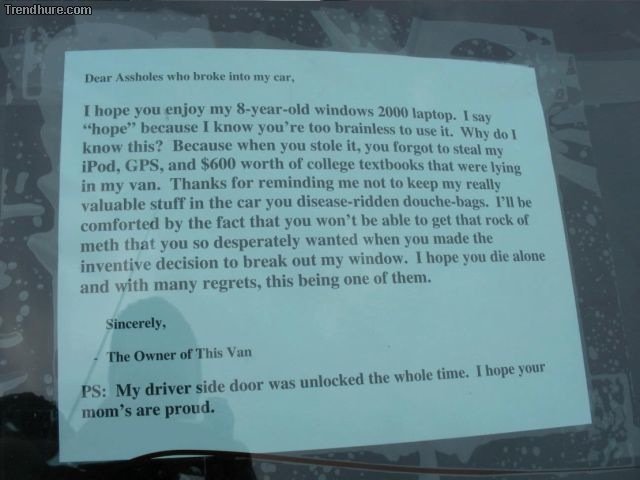 Trendhure.com
Dear Assholes who broke into my car,
I hope you enjoy my 8-year-old windows 2000 laptop.  I say
“hope” because I know you’re too brainless to use it.  Why do I
know this?  Because when you stole it, you forgot to steal my
iPod, GPS, and $600 worth of college textbooks that were lying
in my van.  Thanks for reminding me not to keep my really
valuable stuff in the car you disease-ridden douche-bags.  I’ll be
comforted by the fact that you won’t be able to get that rock of
meth that you so desperately wanted when you made the
inventive decision to break out my window.  I hope you die alone
and with many regrets, this being one of them.
Sincerely,
- The Owner of This Van
PS:  My driver side door was unlocked the whole time.  I hope your
mom’s are proud.